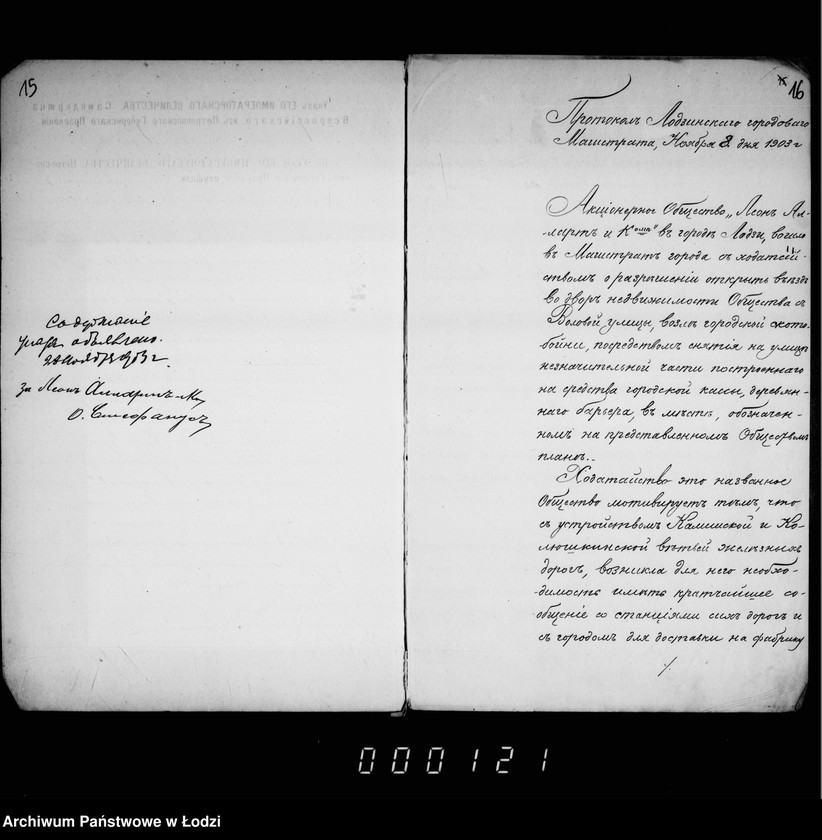 15
Содержаніе
указа объявлено.
28 Ноября 1903 г.
за Леонъ Аллартъ и Ко
16
Протоколъ Лодзинскаго городоваго
Магистрата, Ноября 8 дня 1903 г
Акціонерное Общество „Леонъ Ал-
лартъ и К°" въ городѣ Лодзи, вошло
въ Магистратъ города съ ходатай-
ствомъ о разрѣшеніи открыть въѣздъ
во дворъ недвижимости Общества съ
Воловой улицы, возлѣ городской ското-
бойни, посредствомъ снятія на улицѣ
незначительной части построеннаго
на средства городской кассы, деревян-
наго барьера, въ мѣстѣ, обозначен-
номъ на представленномъ Обществомъ
планѣ.
Ходатайство это названное
Общество мотивируетъ тѣмъ, что
съ устройствомъ Калишской и Ко-
люшкинской вѣтвей желѣзныхъ
дорогъ, возникла для него необхо-
димость имѣть кратчайшее со-
общеніе со станціями сихъ дорогъ и
съ городомъ для доставки на фабрику
./.
000121
Archiwum Państwowe w Łodzi